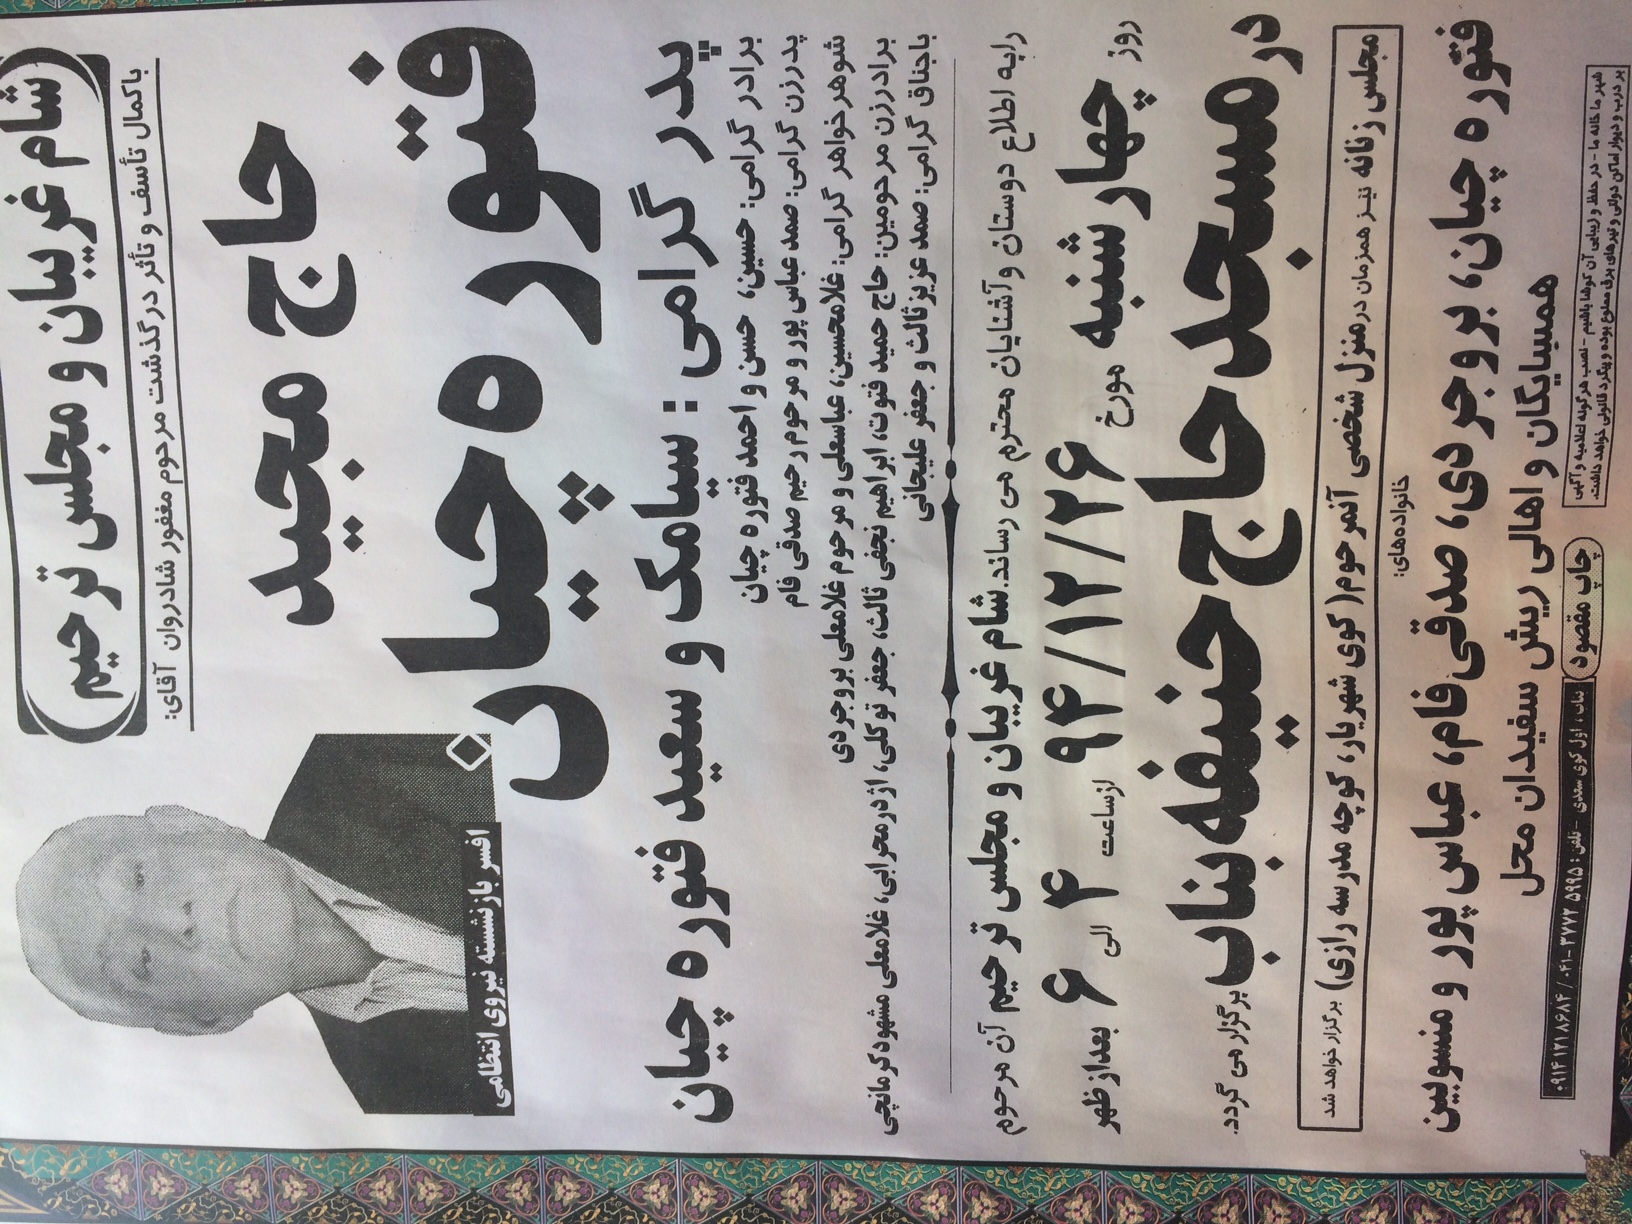 شام غریبان و مجلس ترحیم
باکمال تأسف و تأثر درگذشت مرحوم مغفور شادروان آقای:
حاج مجید
فتوره چیان
افسر بازنشسته نیروی انتظامی
پدر گرامی : سیامک و سعید فتوره چیان
برادر گرامی: حسین، حسن و احمد فتوره چیان
پدرزن گرامی: صمد عباس پور و مرحوم رحیم صدقی فام
شوهرخواهر گرامی: غلامحسین، عباسعلی و مرحوم غلامعلی بروجردی
برادرزن مرحومین: حاج حمید فتوت، ابراهیم نجفی ثالث، جعفر توکلی، اژدرمحرابی، غلامعلی مشهودکرمانچی
باجناق گرامی: صمد عزیزثالث و جعفر علیجانی
رابه اطلاع دوستان و آشنایان محترم می رساند.شام غریبان و مجلس ترحیم آن مرحوم
روز چهارشنبه مورخ ۹۴/۱۲/۲۶ ازساعت ۴ الی ۶ بعدازظهر
در مسجدحاج حنیفه بناب برگزار می گردد.
مجلس زنانه نیز همزمان درمنزل شخصی آنمرحوم(کوی شهریار، کوچه مدرسه رازی) برگزار خواهد شد
خانواده‌های:
فتوره چیان، بروجردی، صدقی فام، عباس پور و منسوبین
همسایگان و اهالی ریش سفیدان محل
شهر ما خانه ما - در حفظ و زیبایی آن کوشا باشیم - نصب هرگونه اعلامیه و آگهی
بر درب و دیوار اماکن دولتی و تیرهای برق ممنوع بوده و پیگرد قانونی خواهد داشت.
چاپ مقصود
بناب ، اول کوی سعدی - تلفن: ۵۹۹۵ ۳۷۷۲-۰۴۱ / ۰۹۱۴۱۲۱۸۶۸۴